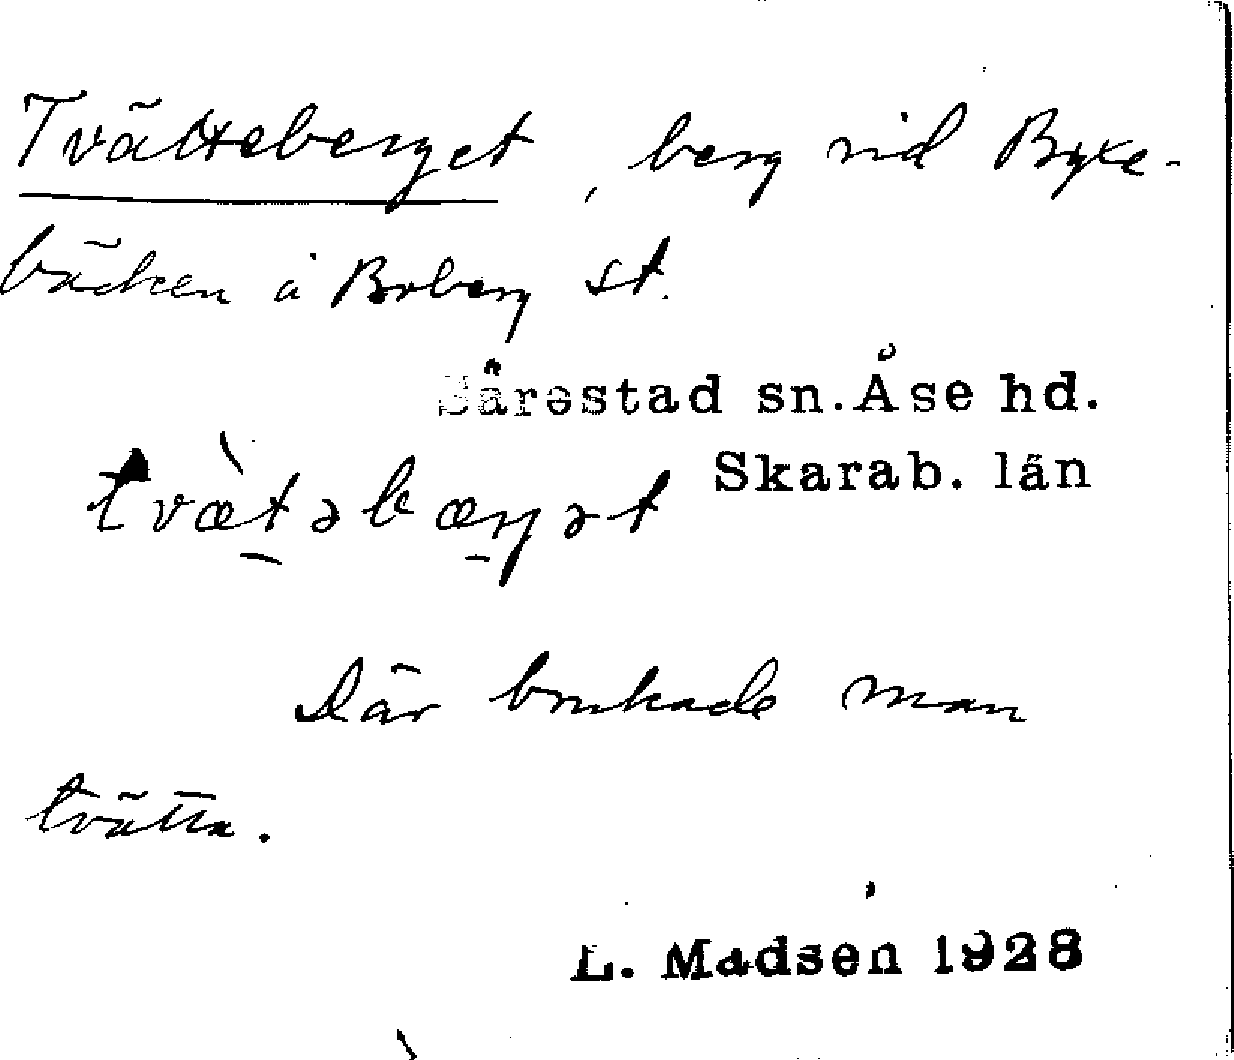 Tvätteberget, berg vid Byke-
bäcken å Boberg st.
Särestad sn. Åse hd.
Skarab. län
tvæ̀təbærjət
Där brukade man
tvätta.
L. Madsen 1928